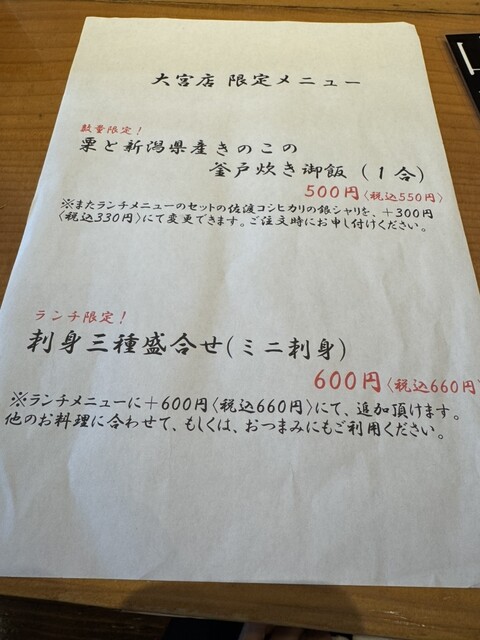 大宮店 限定メニュー
数量限定！
栗と新潟県産きのこの
釜戸炊き御飯（１合）
500円〈税込550円〉
※またランチメニューのセットの佐渡コシヒカリの銀シャリを、＋300円
〈税込330円〉にて変更できます。ご注文時にお申し付けください。
ランチ限定！
刺身三種盛合せ(ミニ刺身)
600円〈税込660円〉
※ランチメニューに＋600円〈税込660円〉にて、追加頂けます。
他のお料理に合わせて、もしくは、おつまみにもご利用ください。